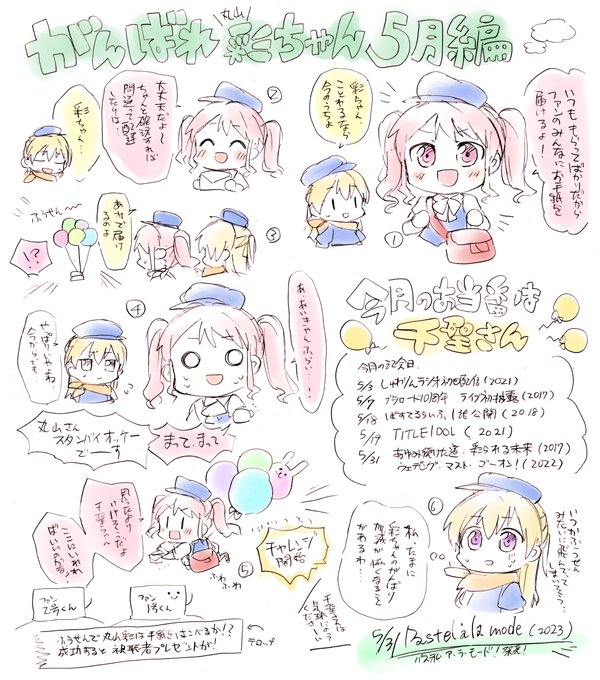 がんばれ丸山彩ちゃん5月編
いつももらってばかりだから
ファンのみんなにお手紙を
届けるよ!
彩ちゃん、
ことわるなら
今のうちよ
①
②
大丈夫だよ〜
ちゃんと確認すれば
間違って配達
したりは…
彩ちゃん…
③
あれで届け
るのよ
ふうせん
!?
④
あ、あいきゃんふらい…
やっぱりことわるわ
今からでも
丸山さん
スタンバイオッケー
でーす
まって、まって
今月のお当番は
千聖さん
今月の記念日
5/3 しゅわりんラジオ初配信(2021)
5/7 ブシロード10周年 ライブ初披露(2017)
5/18 ぱすてるらいふ1話公開(2018)
5/19 TITLE IDOL (2021)
5/31 あゆみ続けた道、彩られる未来(2017)
ウェディング・マスト・ゴーオン!(2022)
⑤
思ったより
いけそうだよ
千聖ちゃん
ここに入れれ
ばいいのかな
ふわふわ
チャレンジ
開始
ファン
2号くん
ファン
1号くん
ふうせんで丸山彩は手紙をはこべるか!?
成功すると視聴者プレゼントが!
テロップ
⑥
私、たまに
彩ちゃんのがんばり
加減が怖くなること
があるわ…
5/31 Pastel à la mode (2023)
パステル・ア・ラ・モード!発売!